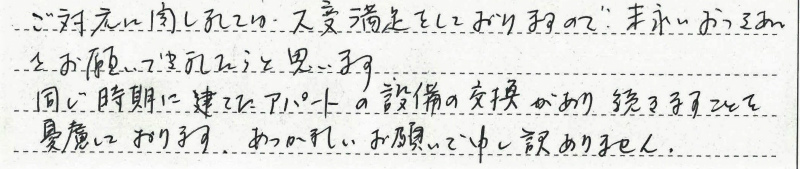 ご対応に関しましては、大変満足をしておりますので、末永いおつきあい
をお願いできましたらと思います
同じ時期に建てたアパートの設備の交換があり続きますことを
憂慮しております。あつかましいお願いで申し訳ありません。